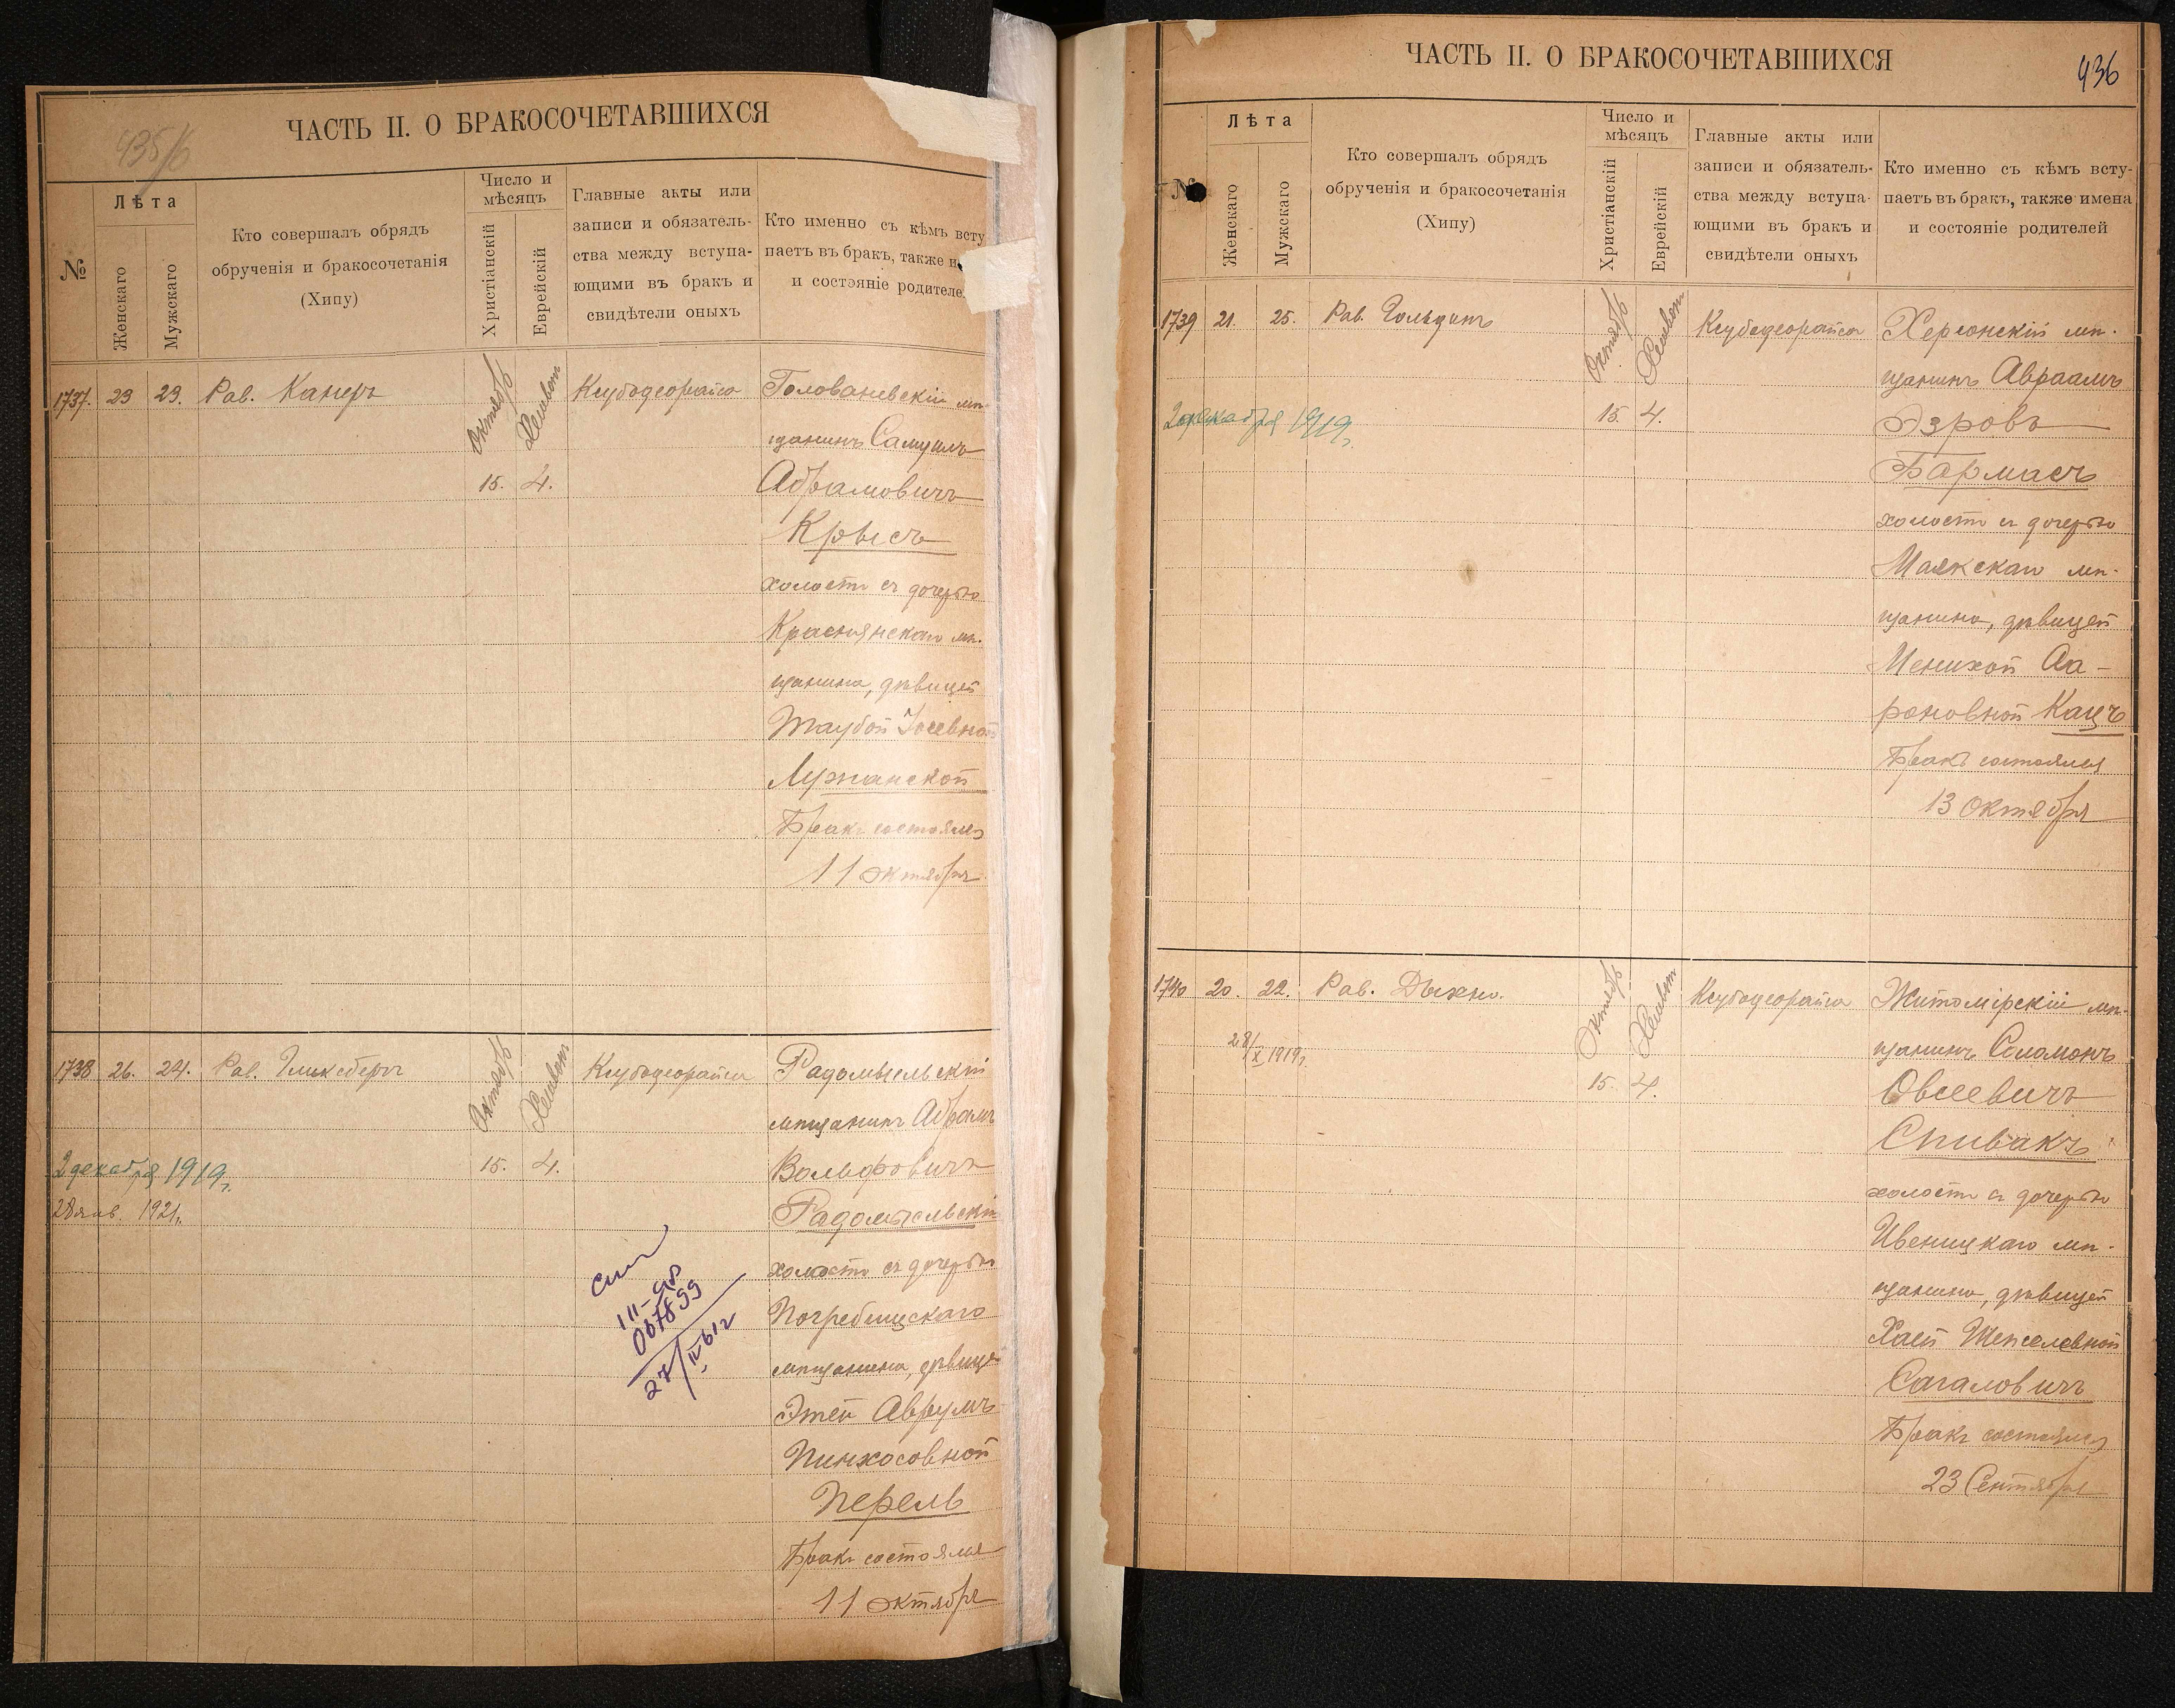 435/б
ЧАСТЬ II. О БРАКОСОЧЕТАВШИХСЯ
№
Лѣта
Женскаго
Мужскаго
Кто совершалъ обрядъ
обрученія и бракосочетанія
(Хипу)
Число и
мѣсяцъ
Христіанскій
Еврейскій
Главные акты или
записи и обязатель-
ства между вступа-
ющими въ бракъ и
свидѣтели оныхъ
Кто именно съ кѣмъ всту
паетъ въ бракъ, также и
и состояніе родителе
1737. 23 23. Рав. Канеръ
Октябрь Хешвон
15. 4.
Ксубодеорайса
Голованевскій мѣ-
щанинъ Самуилъ
Абрамовичъ
Крысъ
холостъ съ дочерью
Краснянскаго мѣ-
щанина, дѣвицей
Таубой Іосевной
Лужанской
Бракъ состоялся
11 октября
1738 26. 24. Рав. Гликсбергъ
Октябрь Хешвон
15. 4.
2 декабря 1919г.
28 янв. 1921г.
Ксубодеорайса
Радомысльскій
мѣщанинъ Абрамъ
Вольфовичъ
Радомысльскій
холостъ съ дочерью
Погребищскаго
мѣщанина, дѣвице
Этей Аврумъ-
Пинхосовной
Перель
Бракъ состоялся
11 октября
III-
007899
27/IV 61г
ЧАСТЬ II. О БРАКОСОЧЕТАВШИХСЯ
436
№
Лѣта
Женскаго
Мужскаго
Кто совершалъ обрядъ
обрученія и бракосочетанія
(Хипу)
Число и
мѣсяцъ
Христіанскій
Еврейскій
Главные акты или
записи и обязатель-
ства между вступа-
ющими въ бракъ и
свидѣтели оныхъ
Кто именно съ кѣмъ всту-
паетъ въ бракъ, также имена
и состояніе родителей
1739 21. 25. Рав. Гольдинъ
Октябрь Хешвон
15. 4.
2 декабря 1919г.
Ксубодеорайса
Херсонскій мѣ-
щанинъ Авраамъ
Эзровъ
Бармасъ
холостъ съ дочерью
Маякскаго мѣ-
щанина, дѣвицей
Менихой Аа-
роновной Кацъ
Бракъ состоялся
13 октября
1740 20. 22. Рав. Дыхно.
28/X 1919г.
Октябрь Хешвон
15. 4.
Ксубодеорайса
Житомірскій мѣ-
щанинъ Соломонъ
Овсеевичъ
Спивакъ
холостъ съ дочерью
Ивеницкаго мѣ-
щанина, дѣвицей
Хаей Шепселевной
Сагаловичъ
Бракъ состоялся
23 Сентября